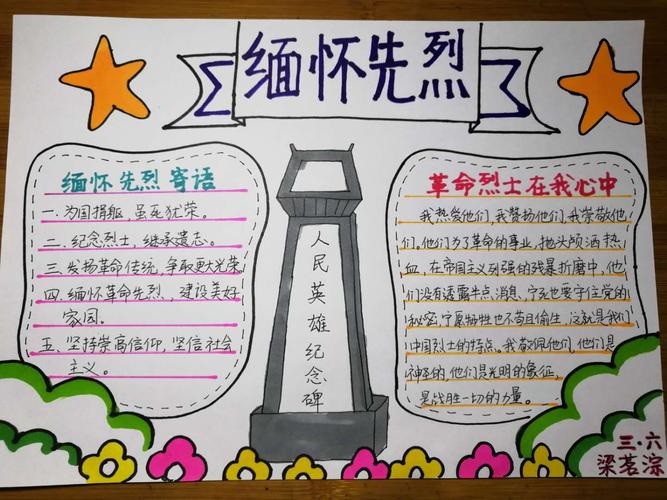 缅怀先烈
缅怀先烈寄语
一.为国捐躯,虽死犹荣。
二.纪念烈士,继承遗志。
三.发扬革命传统,争取更大光荣
四.缅怀革命先烈、建设美好
家园。
五、坚持崇高信仰,坚信社会
主义。
人民英雄纪念碑
革命烈士在我心中
我热爱他们,我赞扬他们,我崇敬他
们,他们为了革命的事业,抛头颅洒热
血,在帝国主义列强的残暴折磨中,他
们没有透露半点消息,宁死也要守住党的
秘密,宁愿牺牲也不苟且偷生,这就是我们
中国烈士的特点。我敬佩他们,他们是
神圣的,他们是光明的象征,
是战胜一切的力量。
三·六
梁茗淙